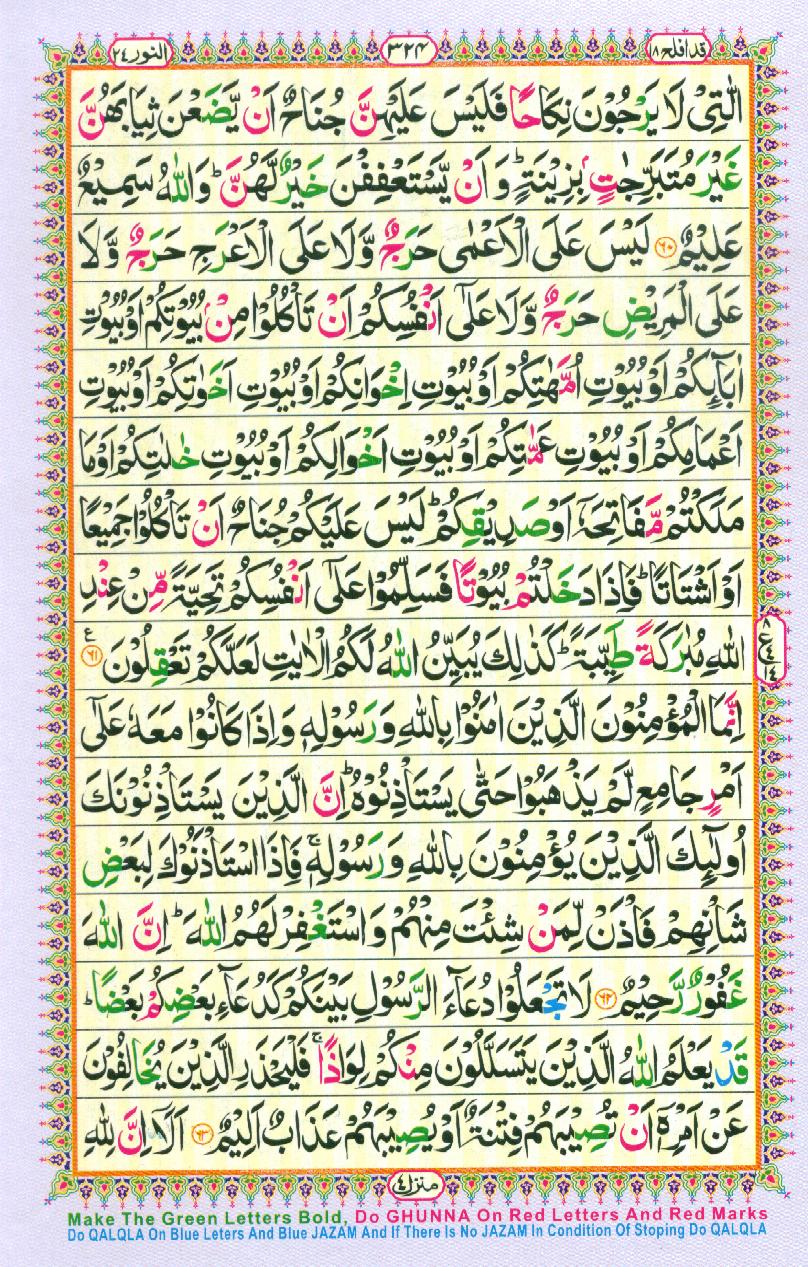 قدافلح ۱۸
۳۲۴
النور ۲۴
الّٰتِیْ لَا یَرْجُوْنَ نِكَاحًا فَلَیْسَ عَلَیْهِنَّ جُنَاحٌ اَنْ یَّضَعْنَ ثِیَابَهُنَّ
غَیْرَ مُتَبَرِّجٰتٍۭ بِزِیْنَةٍ ؕ وَ اَنْ یَّسْتَعْفِفْنَ خَیْرٌ لَّهُنَّ ؕ وَاللّٰهُ سَمِیْعٌ
عَلِیْمٌ ﴿۶۰﴾ لَیْسَ عَلَی الْاَعْمٰی حَرَجٌ وَّلَا عَلَی الْاَعْرَجِ حَرَجٌ وَّلَا
عَلَی الْمَرِیْضِ حَرَجٌ وَّلَا عَلٰۤی اَنْفُسِكُمْ اَنْ تَاْكُلُوْا مِنْۢ بُیُوْتِكُمْ اَوْ بُیُوْتِ
اٰبَآىِٕكُمْ اَوْ بُیُوْتِ اُمَّهٰتِكُمْ اَوْ بُیُوْتِ اِخْوَانِكُمْ اَوْ بُیُوْتِ اَخَوٰتِكُمْ اَوْ بُیُوْتِ
اَعْمَامِكُمْ اَوْ بُیُوْتِ عَمّٰتِكُمْ اَوْ بُیُوْتِ اَخْوَالِكُمْ اَوْ بُیُوْتِ خٰلٰتِكُمْ اَوْ مَا
مَلَكْتُمْ مَّفَاتِحَهٗۤ اَوْ صَدِیْقِكُمْ ؕ لَیْسَ عَلَیْكُمْ جُنَاحٌ اَنْ تَاْكُلُوْا جَمِیْعًا
اَوْ اَشْتَاتًا ؕ فَاِذَا دَخَلْتُمْ بُیُوْتًا فَسَلِّمُوْا عَلٰۤی اَنْفُسِكُمْ تَحِیَّةً مِّنْ عِنْدِ
اللّٰهِ مُبٰرَكَةً طَیِّبَةً ؕ كَذٰلِكَ یُبَیِّنُ اللّٰهُ لَكُمُ الْاٰیٰتِ لَعَلَّكُمْ تَعْقِلُوْنَ ﴿۶۱﴾ ع
اِنَّمَا الْمُؤْمِنُوْنَ الَّذِیْنَ اٰمَنُوْا بِاللّٰهِ وَ رَسُوْلِهٖ وَ اِذَا كَانُوْا مَعَهٗ عَلٰۤی
اَمْرٍ جَامِعٍ لَّمْ یَذْهَبُوْا حَتّٰی یَسْتَاْذِنُوْهُ ؕ اِنَّ الَّذِیْنَ یَسْتَاْذِنُوْنَكَ
اُولٰٓىِٕكَ الَّذِیْنَ یُؤْمِنُوْنَ بِاللّٰهِ وَ رَسُوْلِهٖ ۚ فَاِذَا اسْتَاْذَنُوْكَ لِبَعْضِ
شَاْنِهِمْ فَاْذَنْ لِّمَنْ شِئْتَ مِنْهُمْ وَ اسْتَغْفِرْ لَهُمُ اللّٰهَ ؕ اِنَّ اللّٰهَ
غَفُوْرٌ رَّحِیْمٌ ﴿۶۲﴾ لَا تَجْعَلُوْا دُعَآءَ الرَّسُوْلِ بَیْنَكُمْ كَدُعَآءِ بَعْضِكُمْ بَعْضًا ؕ
قَدْ یَعْلَمُ اللّٰهُ الَّذِیْنَ یَتَسَلَّلُوْنَ مِنْكُمْ لِوَاذًا ۚ فَلْیَحْذَرِ الَّذِیْنَ یُخَالِفُوْنَ
عَنْ اَمْرِهٖۤ اَنْ تُصِیْبَهُمْ فِتْنَةٌ اَوْ یُصِیْبَهُمْ عَذَابٌ اَلِیْمٌ ﴿۶۳﴾ اَلَاۤ اِنَّ لِلّٰهِ
منزل ۴
Make The Green Letters Bold, Do GHUNNA On Red Letters And Red Marks
Do QALQLA On Blue Leters And Blue JAZAM And If There Is No JAZAM In Condition Of Stoping Do QALQLA